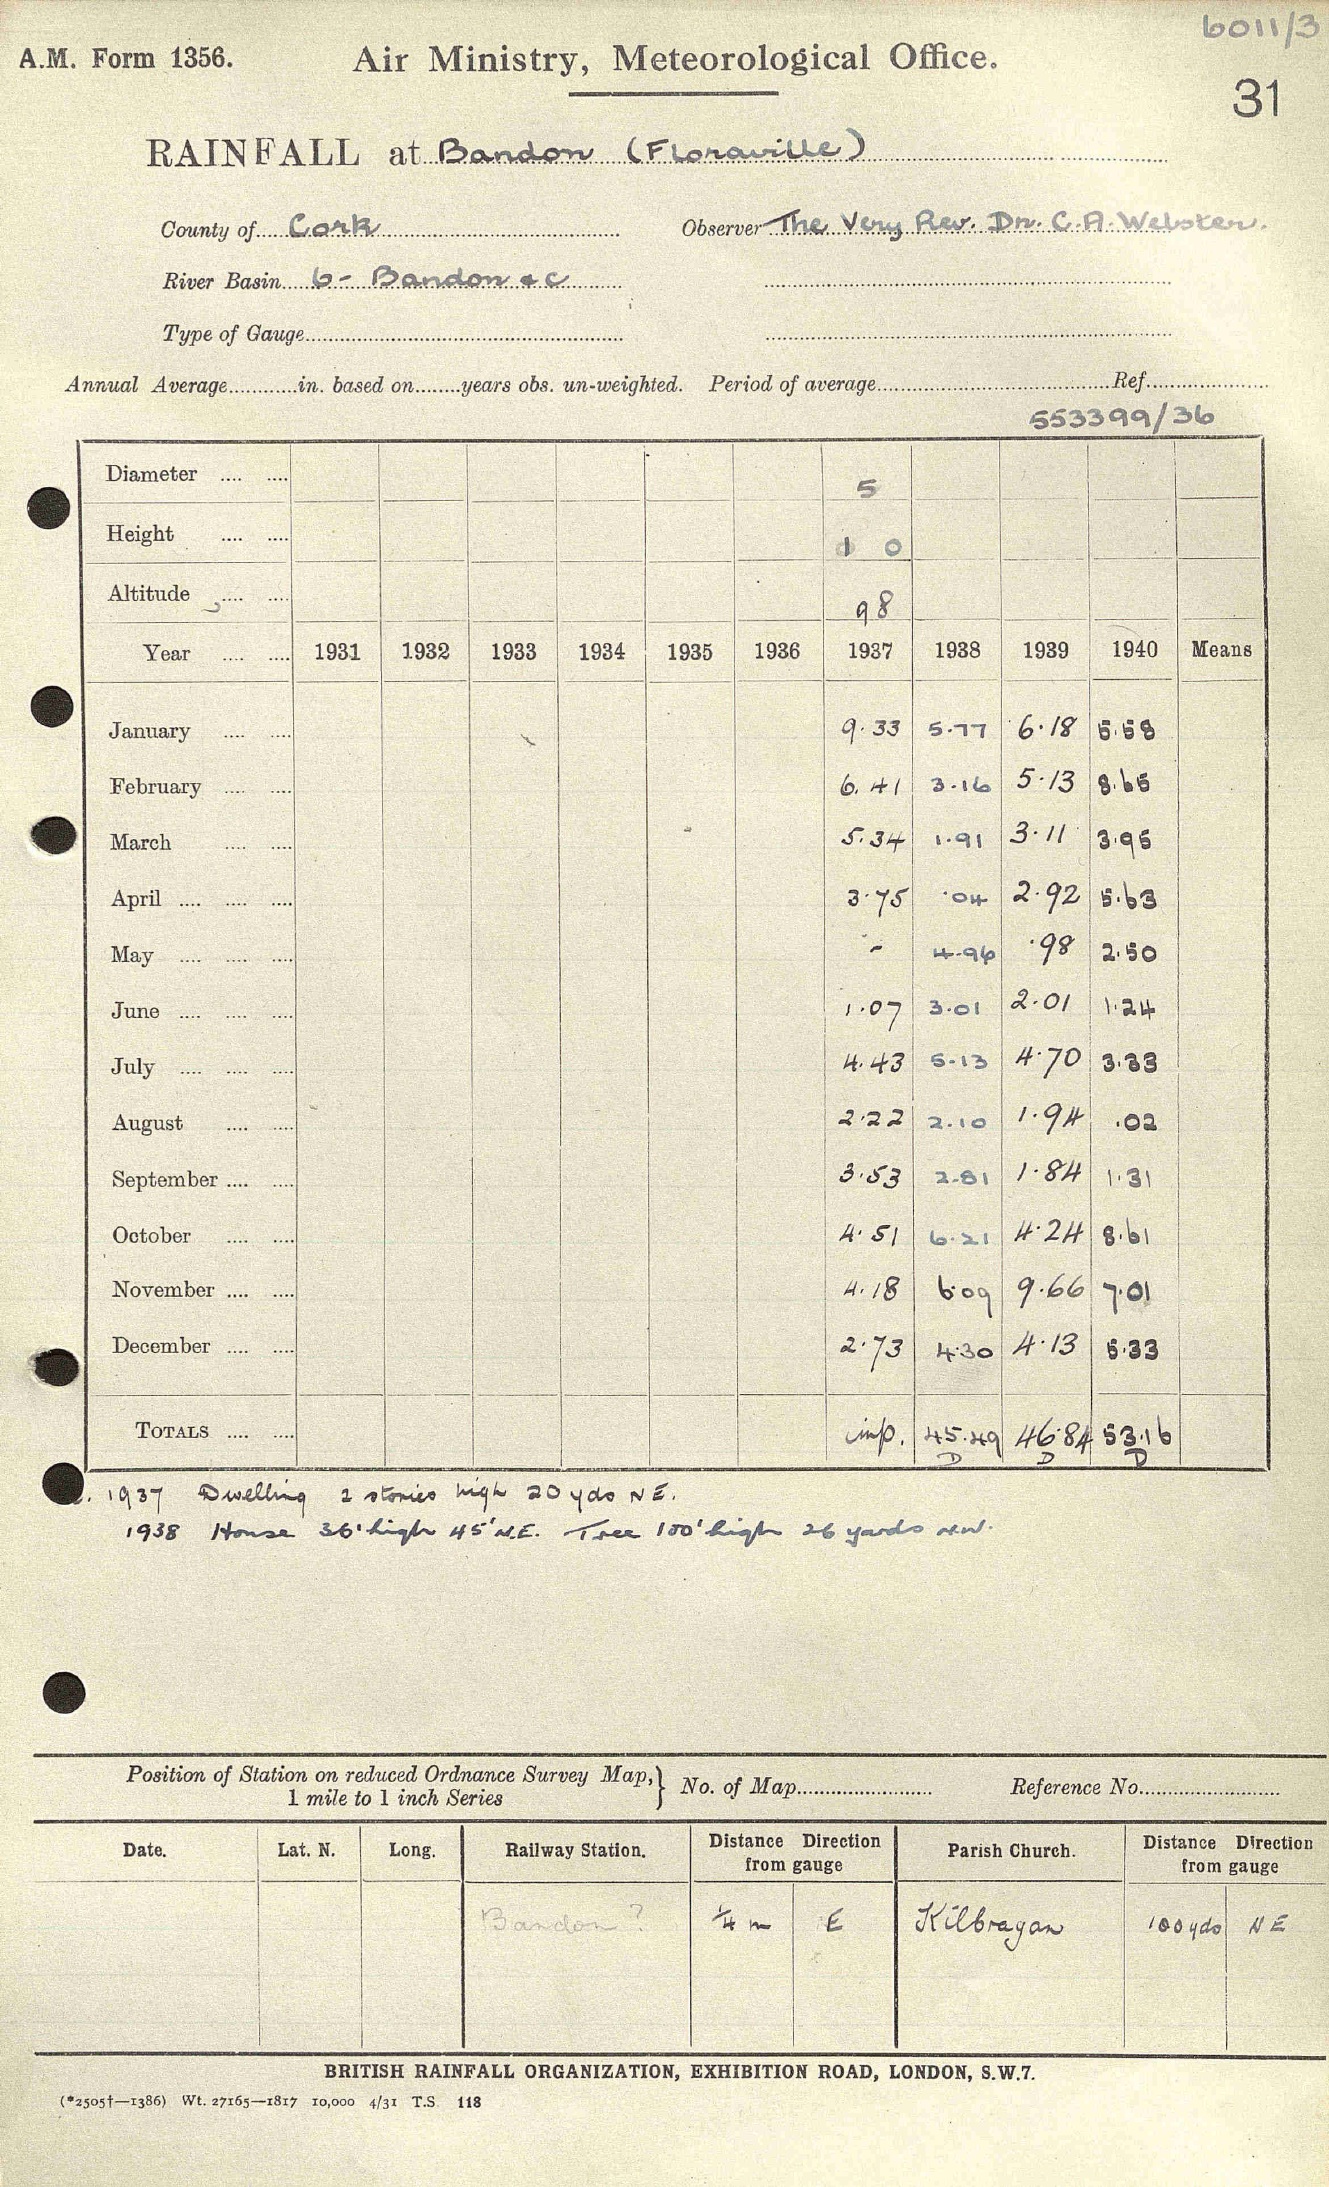 6011/3
A.M. Form 1356. Air Ministry, Meteorological Office.
31
RAINFALL at Bandon (Floraville)
County of Cork Observer The Very Rev. Dn. C. A. Webster.
River Basin 6 - Bandon & c
Type of Gauge
Annual Average in. based on years obs. un-weighted. Period of average Ref.
553399/36
Diameter 5
Height 1 0
Altitude 98
Year 1931 1932 1933 1934 1935 1936 1937 1938 1939 1940 Means
January 9.33 5.77 6.18 5.58
February 6.41 3.16 5.13 8.65
March 5.34 1.91 3.11 3.95
April 3.75 .04 2.92 5.63
May - 4.96 .98 2.50
June 1.07 3.01 2.01 1.24
July 4.43 5.13 4.70 3.33
August 2.22 2.10 1.94 .02
September 3.53 2.81 1.84 1.31
October 4.51 6.21 4.24 8.61
November 4.18 6.09 9.66 7.01
December 2.73 4.30 4.13 5.33
TOTALS imp. 45.49 46.84 53.16
D D D
1937 Dwelling 2 stories high 20 yds NE.
1938 House 36' high 45' N.E. Tree 100' high 26 yards N.W.
Position of Station on reduced Ordnance Survey Map, 1 mile to 1 inch Series } No. of Map Reference No.
Date. Lat. N. Long. Railway Station. Distance Direction from gauge Parish Church. Distance Direction from gauge
Bandon ? 1/4 m E Kilbragan 100 yds NE
BRITISH RAINFALL ORGANIZATION, EXHIBITION ROAD, LONDON, S.W.7.
(*2505†—1386) Wt. 27165—1817 10,000 4/31 T.S 118